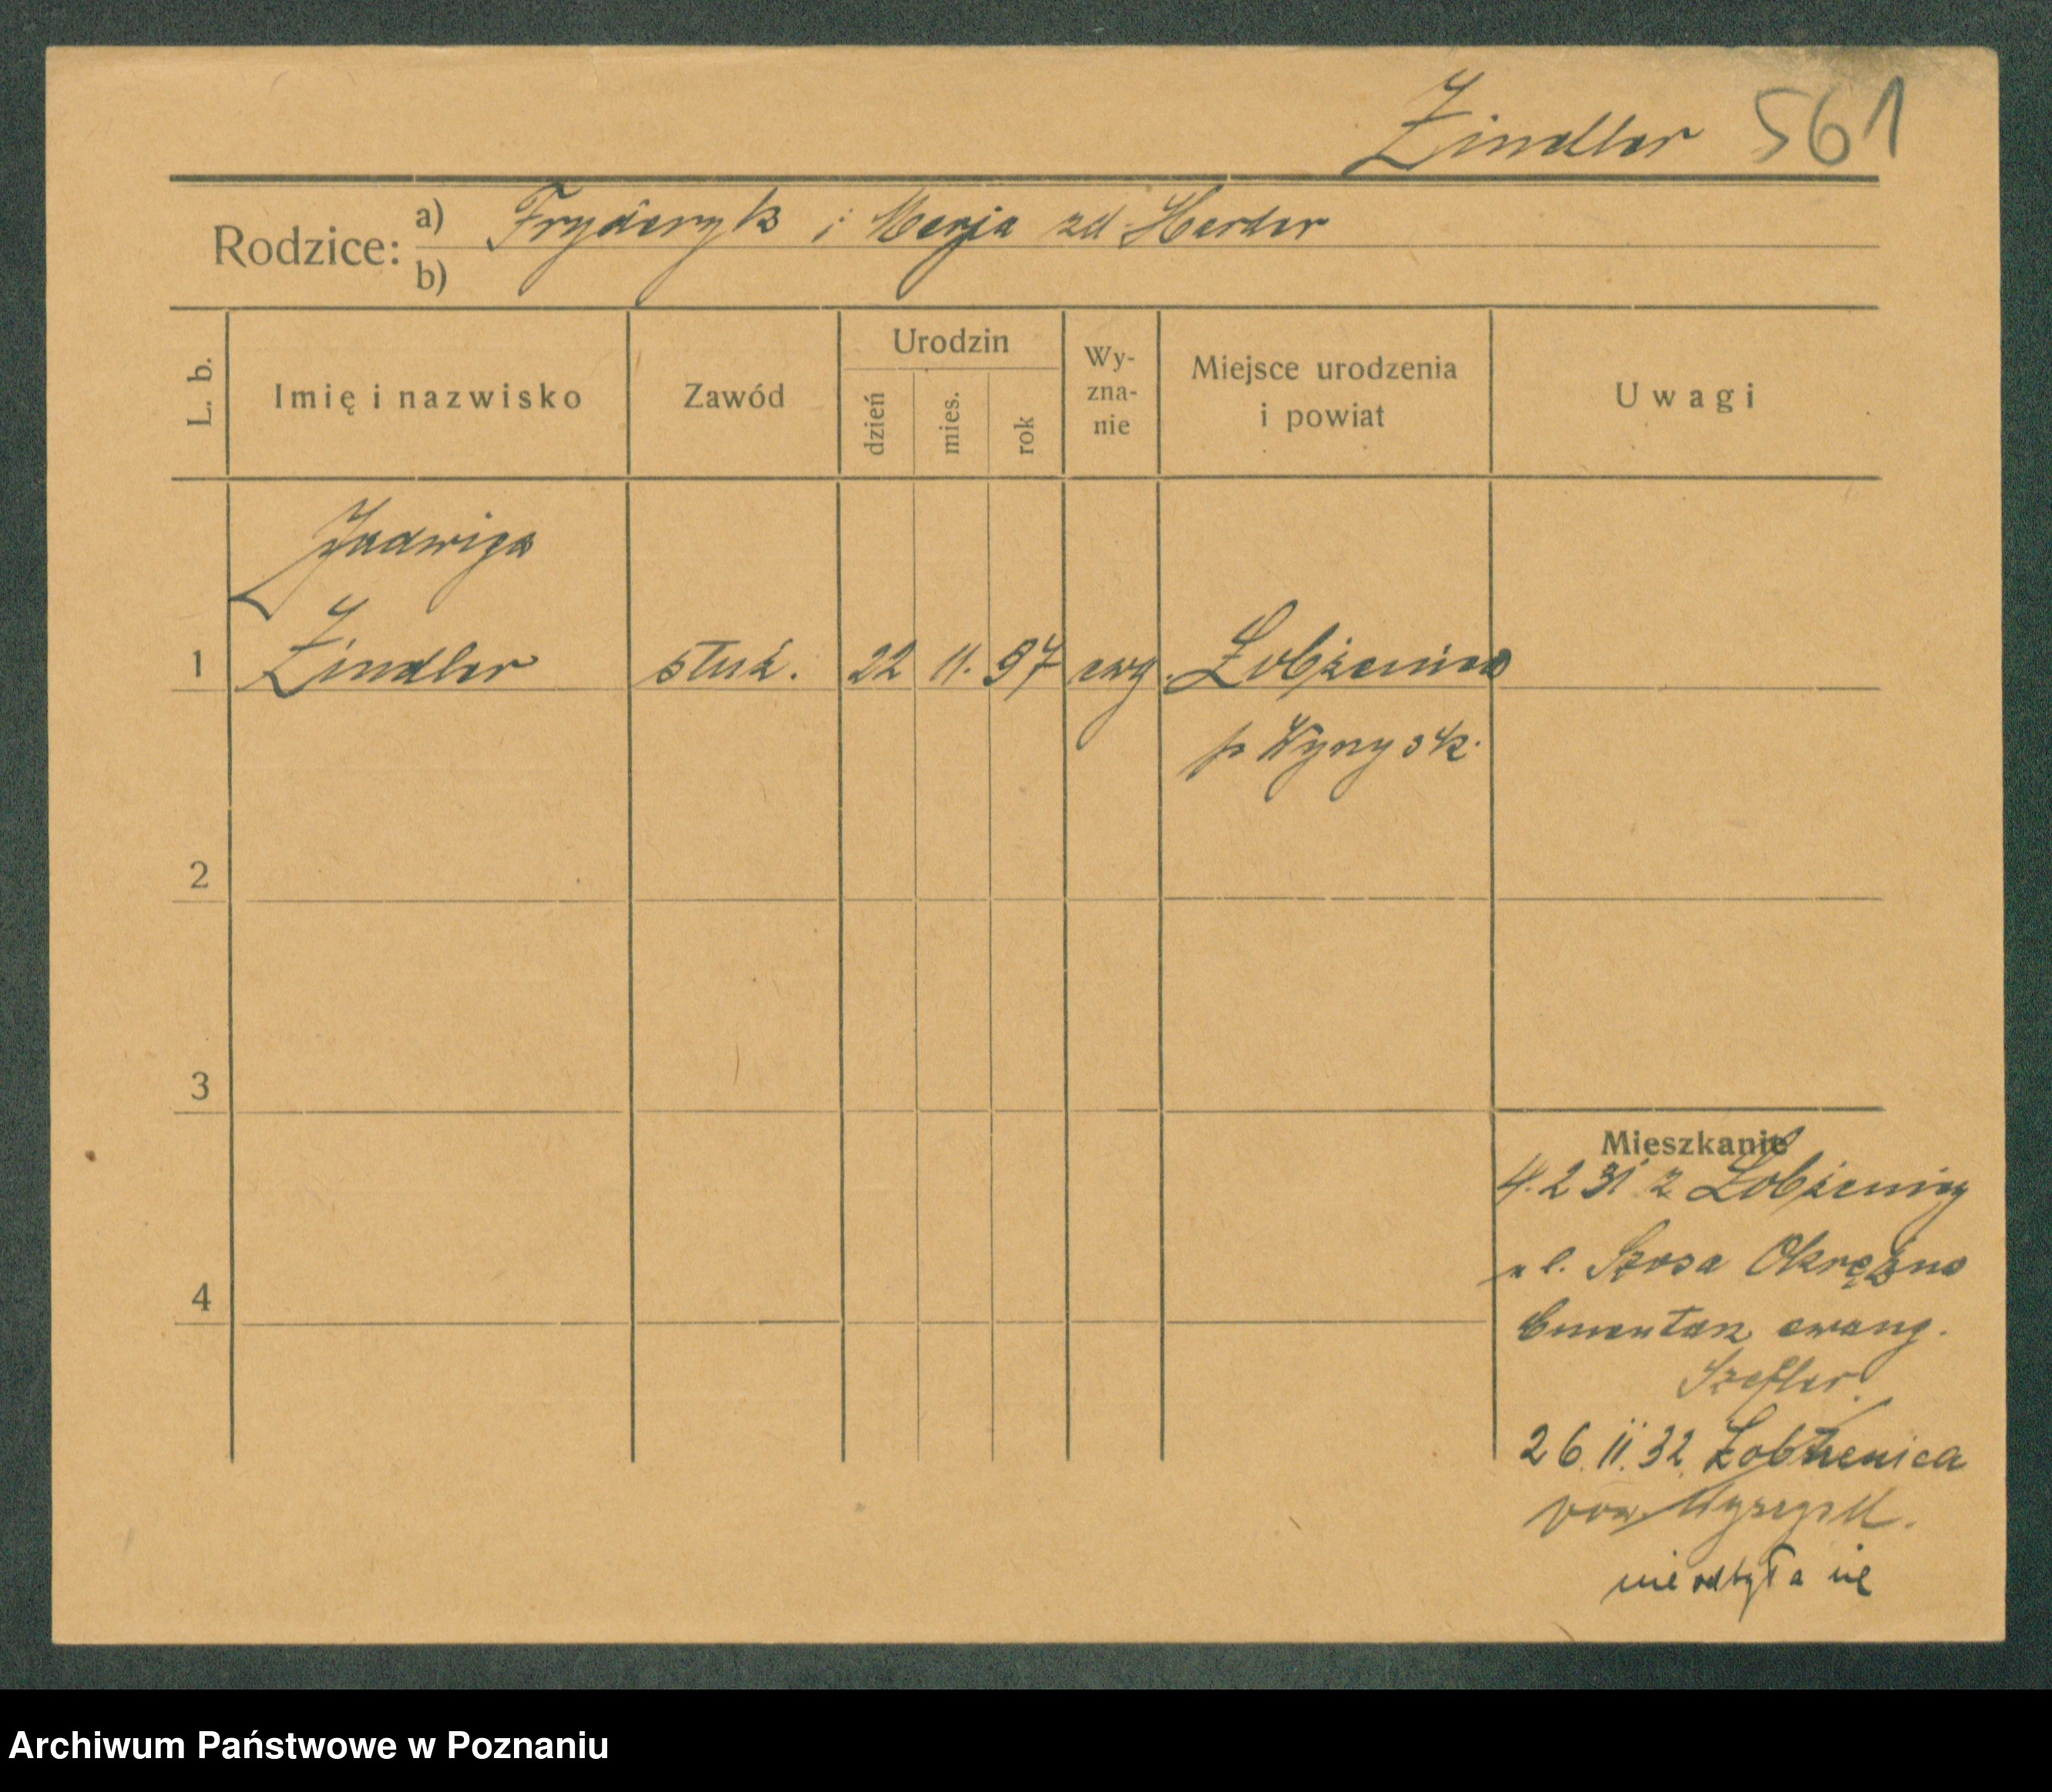 Zindler 561
Rodzice: a) Fryderyk i Marja zd Harder
b)
L. b. Imię i nazwisko Zawód Urodzin dzień mies. rok Wy-zna-nie Miejsce urodzenia i powiat Uwagi
Jadwiga
1 Zindler służ. 22 11. 97 ewg. Łobżenica
p Wyrzysk.
2
3
Mieszkanie
4. 2 31 z Łobżenicy
ul. Szosa Okrężna
4
Cmentarz ewang.
Szefler.
26. II. 32. Łobżenica
pow. Wyrzysk.
nie odbyła się
Archiwum Państwowe w Poznaniu